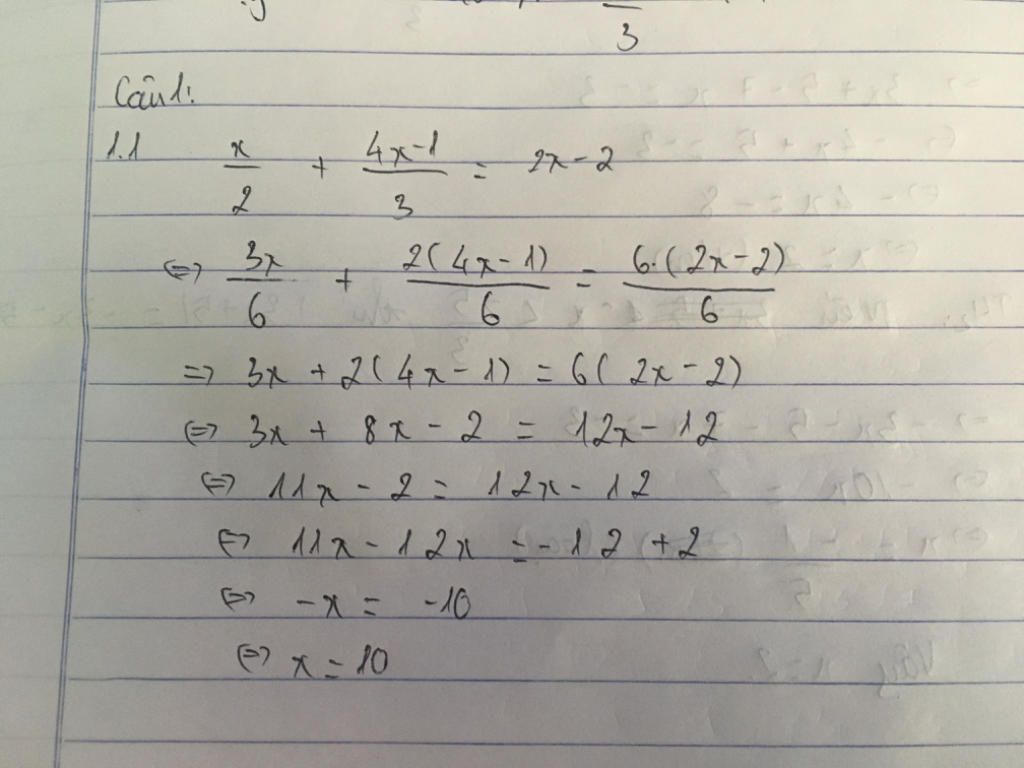 3
Câu 1:
1.1 x/2 + (4x-1)/3 = 2x-2
⇔ 3x/6 + 2(4x-1)/6 = 6.(2x-2)/6
=> 3x + 2(4x-1) = 6(2x-2)
⇔ 3x + 8x - 2 = 12x - 12
⇔ 11x - 2 = 12x - 12
⇔ 11x - 12x = -12 + 2
⇔ -x = -10
⇔ x = 10